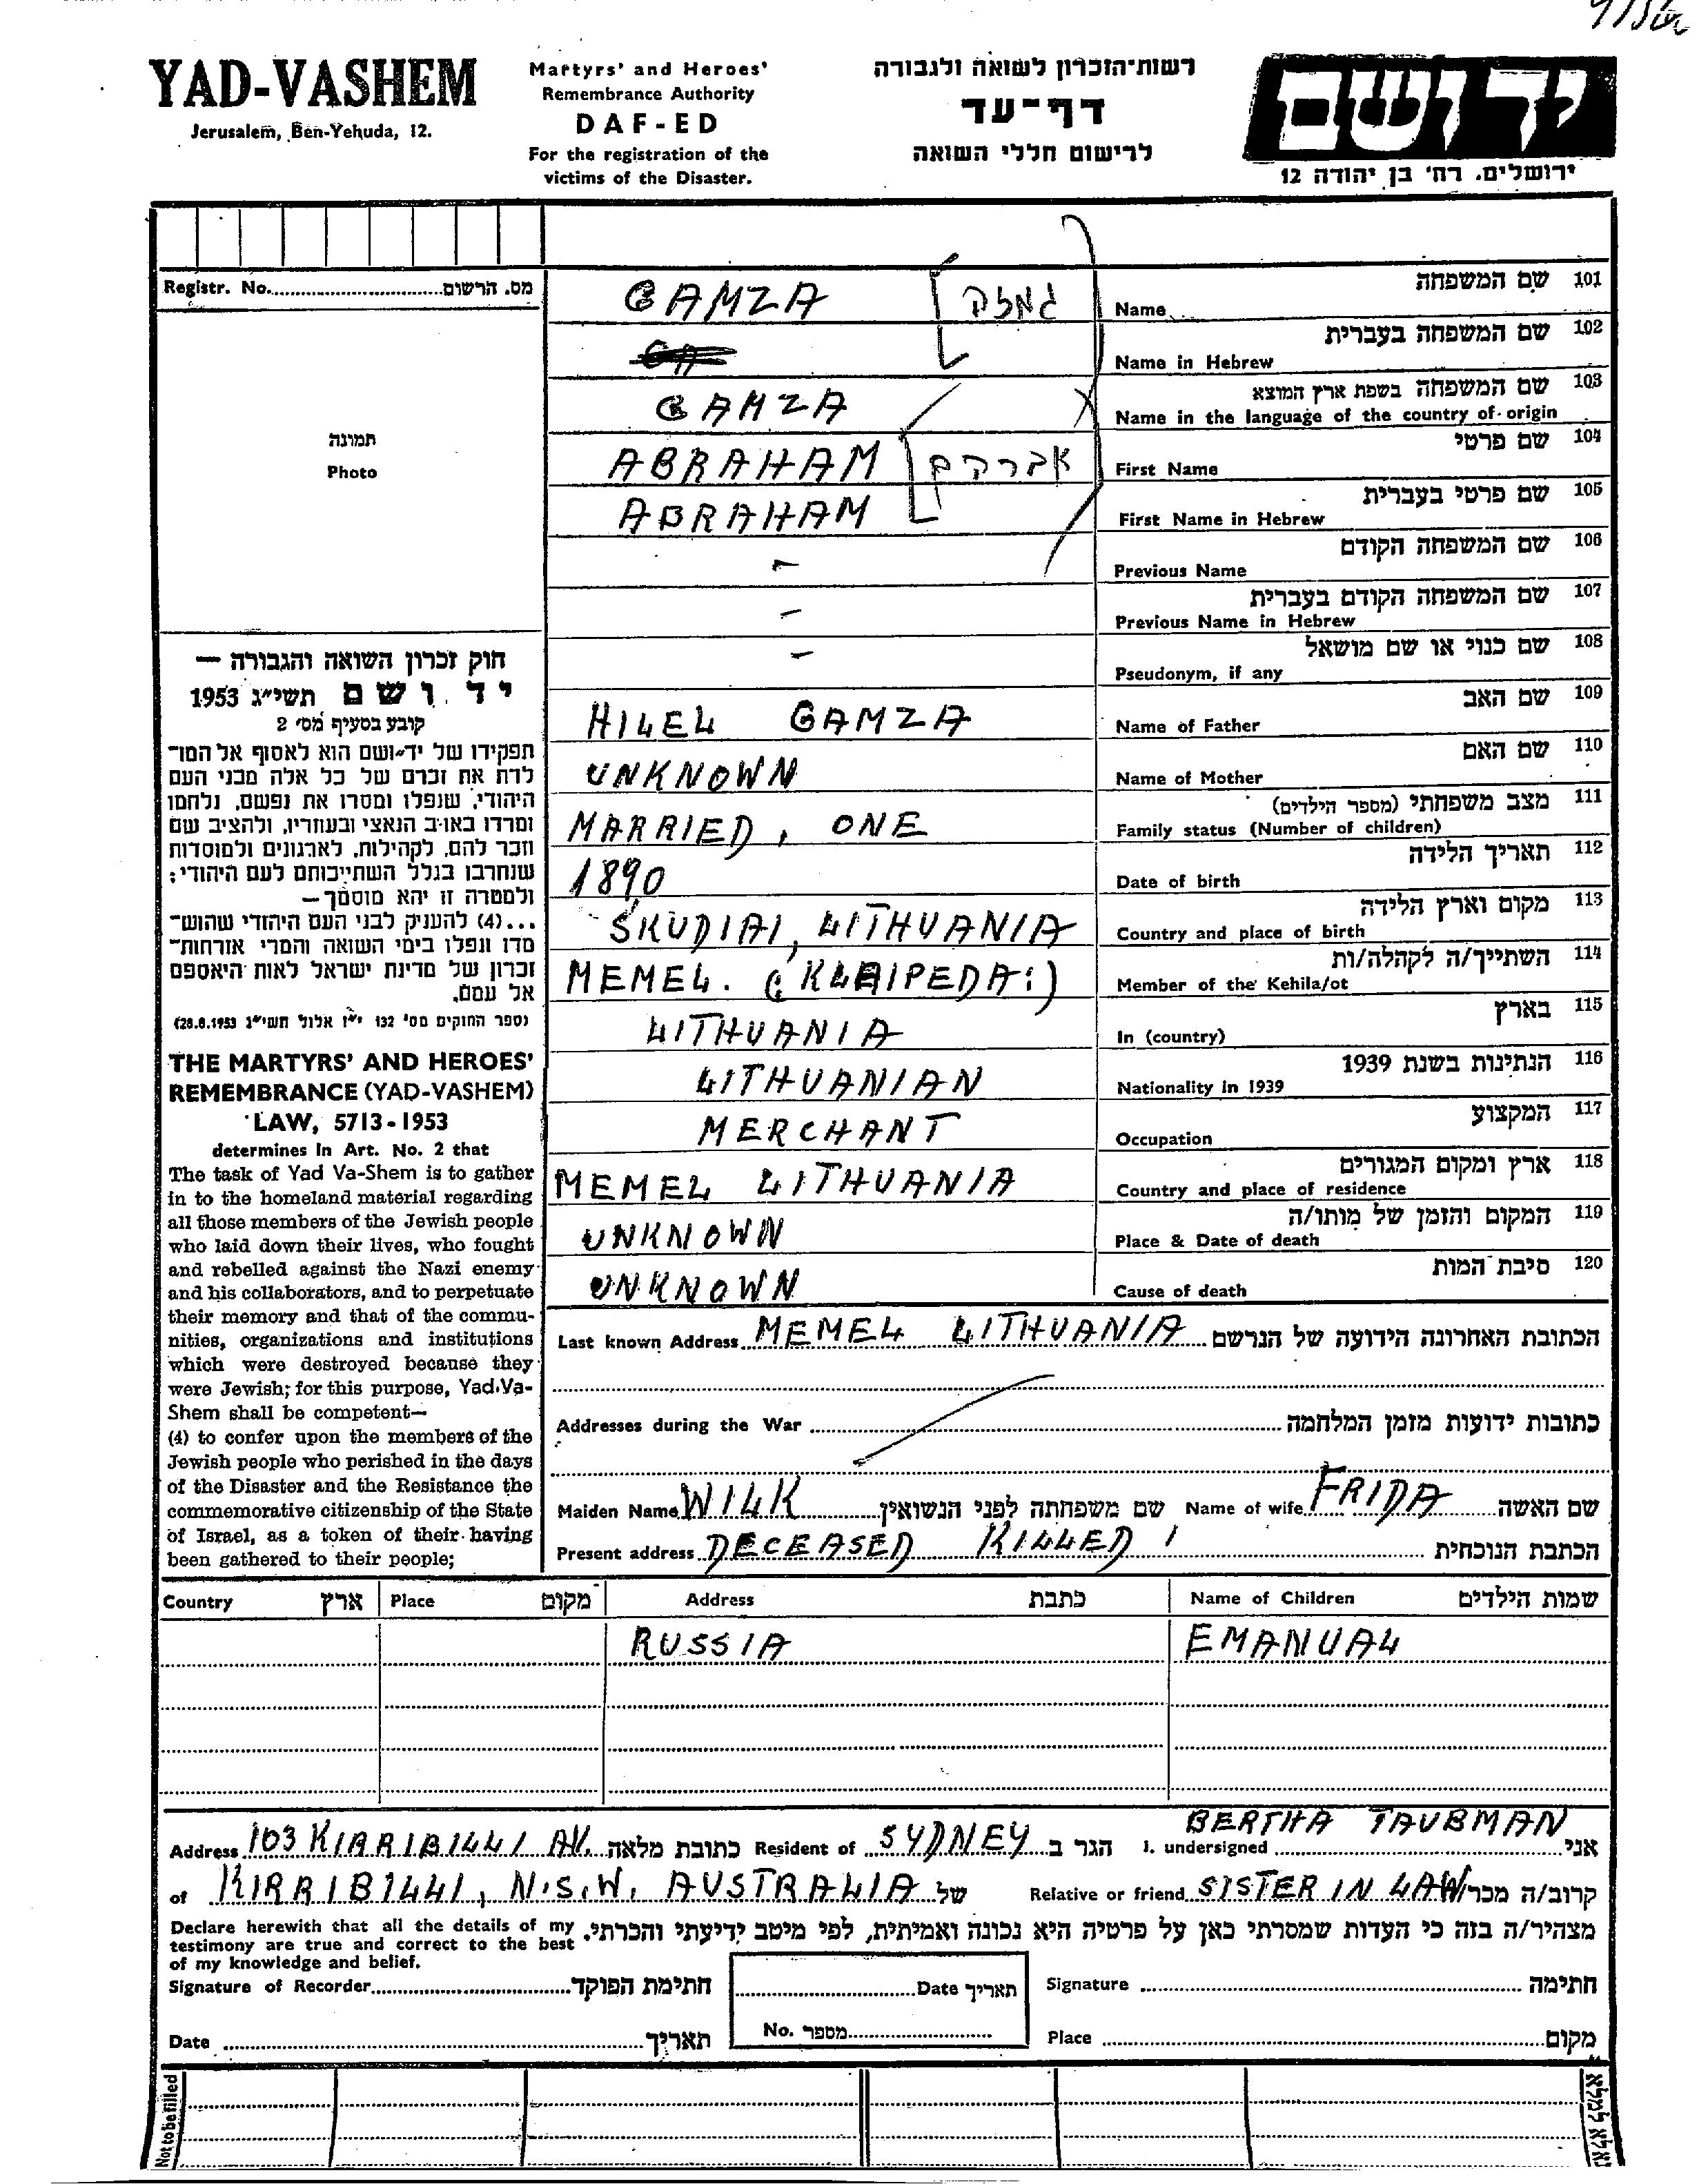 YAD-VASHEM
Jerusalem, Ben-Yehuda, 12.
Martyrs' and Heroes'
Remembrance Authority
DAF-ED
For the registration of the
victims of the Disaster.
רשות־הזכרון לשואה ולגבורה
דף־עד
לרישום חללי השואה
יד ושם
ירושלים. רח' בן יהודה 12
Registr. No. מס. הרשום
תמונה
Photo
GAMZA גמזה Name שם המשפחה 101
Name in Hebrew שם המשפחה בעברית 102
GAMZA Name in the language of the country of origin שם המשפחה בשפת ארץ המוצא 103
ABRAHAM אברהם First Name שם פרטי 104
ABRAHAM First Name in Hebrew שם פרטי בעברית 105
- Previous Name שם המשפחה הקודם 106
- Previous Name in Hebrew שם המשפחה הקודם בעברית 107
- Pseudonym, if any שם כנוי או שם מושאל 108
HILEL GAMZA Name of Father שם האב 109
UNKNOWN Name of Mother שם האם 110
MARRIED, ONE Family status (Number of children) מצב משפחתי (מספר הילדים) 111
1890 Date of birth תאריך הלידה 112
SKUDIAI, LITHUANIA Country and place of birth מקום וארץ הלידה 113
MEMEL. (: KLAIPEDA :) Member of the Kehila/ot השתייך/ה לקהלה/ות 114
LITHUANIA In (country) בארץ 115
LITHUANIAN Nationality in 1939 הנתינות בשנת 1939 116
MERCHANT Occupation המקצוע 117
MEMEL LITHUANIA Country and place of residence ארץ ומקום המגורים 118
UNKNOWN Place & Date of death המקום והזמן של מותו/ה 119
UNKNOWN Cause of death סיבת המות 120
חוק זכרון השואה והגבורה —
יד ושם תשי״ג 1953
קובע בסעיף מס' 2
תפקידו של יד־ושם הוא לאסוף אל המו־
לדת את זכרם של כל אלה מבני העם
היהודי, שנפלו ומסרו את נפשם, נלחמו
ומרדו באויב הנאצי ובעוזריו, ולהציב שם
וזכר להם, לקהילות, לארגונים ולמוסדות
שנחרבו בגלל השתייכותם לעם היהודי;
ולמטרה זו יהא מוסמך—
...(4) להעניק לבני העם היהודי שהוש־
מדו ונפלו בימי השואה והמרי אזרחות־
זכרון של מדינת ישראל לאות היאספם
אל עמם.
(ספר החוקים מס' 132 י״ז אלול תשי״ג 28.8.1953)
THE MARTYRS' AND HEROES'
REMEMBRANCE (YAD-VASHEM)
LAW, 5713-1953
determines in Art. No. 2 that
The task of Yad Va-Shem is to gather
in to the homeland material regarding
all those members of the Jewish people
who laid down their lives, who fought
and rebelled against the Nazi enemy
and his collaborators, and to perpetuate
their memory and that of the commu-
nities, organizations and institutions
which were destroyed because they
were Jewish; for this purpose, Yad-Va-
Shem shall be competent—
(4) to confer upon the members of the
Jewish people who perished in the days
of the Disaster and the Resistance the
commemorative citizenship of the State
of Israel, as a token of their having
been gathered to their people;
Last known Address MEMEL LITHUANIA הכתובת האחרונה הידועה של הנרשם
Addresses during the War כתובות ידועות מזמן המלחמה
Maiden Name WILK שם משפחתה לפני הנשואין Name of wife FRIDA שם האשה
Present address DECEASED KILLED ! הכתבת הנוכחית
Country ארץ Place מקום Address כתבת Name of Children שמות הילדים
RUSSIA EMANUAL
Address 103 KIRRIBILLI AV. כתובת מלאה Resident of SYDNEY הגר ב I. undersigned BERTHA TAUBMAN אני
of KIRRIBILLI, N.S.W. AUSTRALIA של Relative or friend SISTER IN LAW קרוב/ה מכר/
Declare herewith that all the details of my
testimony are true and correct to the best
of my knowledge and belief.
מצהיר/ה בזה כי העדות שמסרתי כאן על פרטיה היא נכונה ואמיתית, לפי מיטב ידיעתי והכרתי.
Signature of Recorder חתימת הפוקד Date תאריך Signature חתימה
Date תאריך No. מספר Place מקום
Not to be filled
נא לא למלא